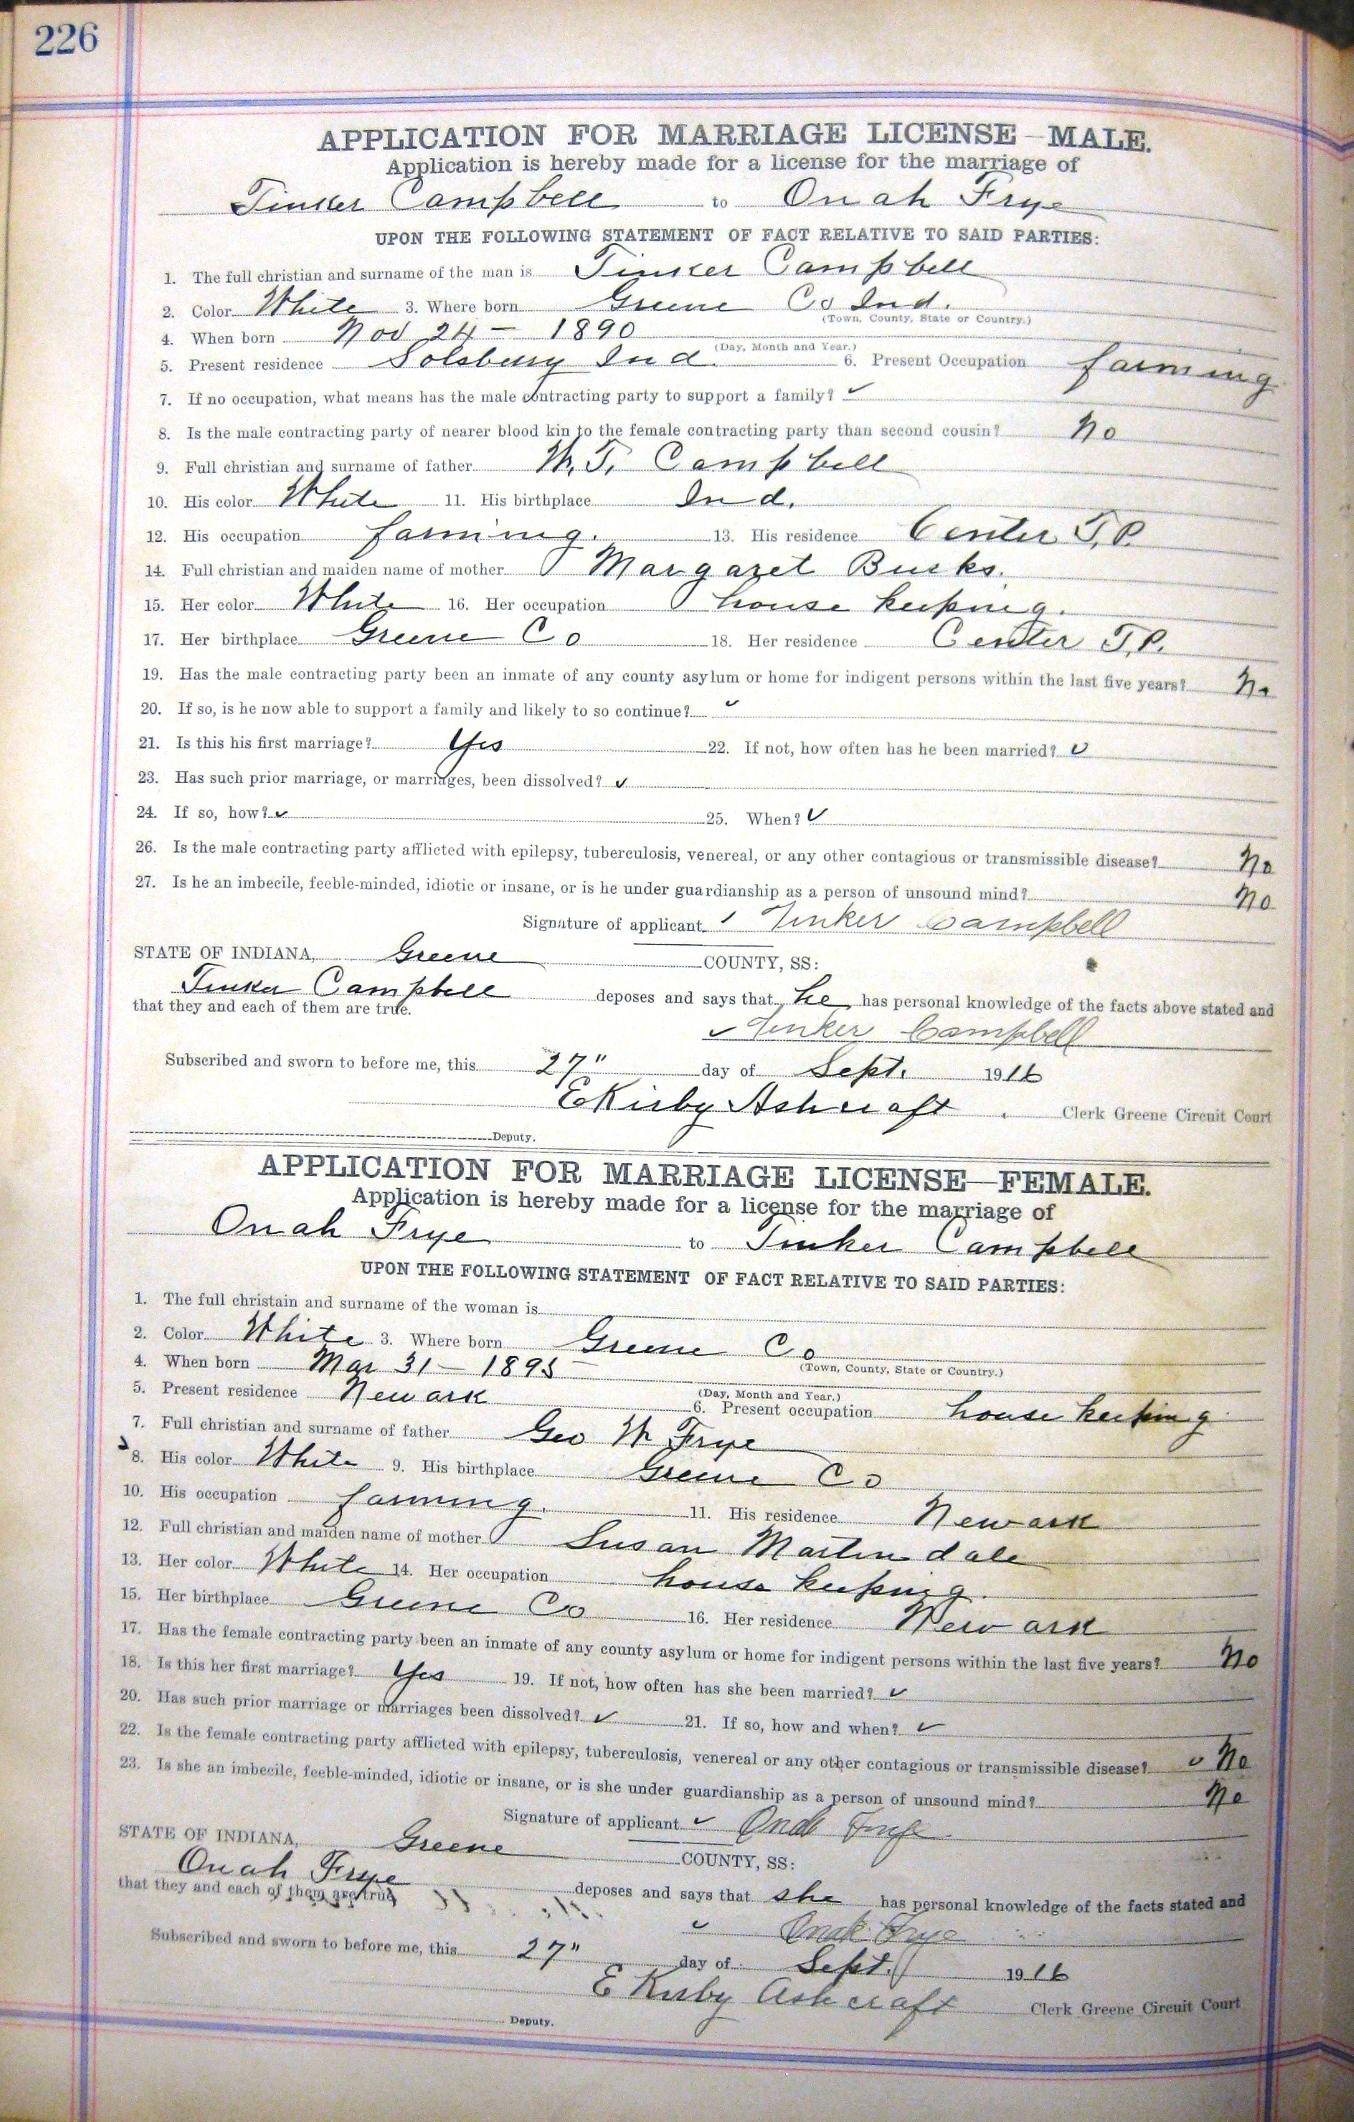 226
APPLICATION FOR MARRIAGE LICENSE—MALE.
Application is hereby made for a license for the marriage of
Tinker Campbell to Onah Frye
UPON THE FOLLOWING STATEMENT OF FACT RELATIVE TO SAID PARTIES:
1. The full christian and surname of the man is Tinker Campbell
2. Color White 3. Where born Greene Co Ind.
(Town, County, State or Country.)
4. When born Nov 24 — 1890
(Day, Month and Year.)
5. Present residence Solsberry Ind 6. Present Occupation farming
7. If no occupation, what means has the male contracting party to support a family? ✓
8. Is the male contracting party of nearer blood kin to the female contracting party than second cousin? No
9. Full christian and surname of father W. T. Campbell
10. His color White 11. His birthplace Ind.
12. His occupation farming. 13. His residence Center T.P.
14. Full christian and maiden name of mother Margaret
15. Her color White 16. Her occupation house keeping.
17. Her birthplace Greene Co 18. Her residence Center T.P.
19. Has the male contracting party been an inmate of any county asylum or home for indigent persons within the last five years? No
20. If so, is he now able to support a family and likely to so continue? ✓
21. Is this his first marriage? Yes 22. If not, how often has he been married? ✓
23. Has such prior marriage, or marriages, been dissolved? ✓
24. If so, how? ✓ 25. When? ✓
26. Is the male contracting party afflicted with epilepsy, tuberculosis, venereal, or any other contagious or transmissible disease? No
27. Is he an imbecile, feeble-minded, idiotic or insane, or is he under guardianship as a person of unsound mind? No
Signature of applicant Tinker Campbell
STATE OF INDIANA, Greene COUNTY, SS:
Tinker Campbell deposes and says that he has personal knowledge of the facts above stated and
that they and each of them are true.
✓ Tinker Campbell
Subscribed and sworn to before me, this 27" day of Sept. 1916
E Kirby Ashcraft Clerk Greene Circuit Court
Deputy.
APPLICATION FOR MARRIAGE LICENSE—FEMALE.
Application is hereby made for a license for the marriage of
Onah Frye to Tinker Campbell
UPON THE FOLLOWING STATEMENT OF FACT RELATIVE TO SAID PARTIES:
1. The full christain and surname of the woman is
2. Color White 3. Where born Greene Co
(Town, County, State or Country.)
4. When born Mar 31 — 1895
(Day, Month and Year.)
5. Present residence Newark 6. Present occupation house keeping
7. Full christian and surname of father Geo W Frye
8. His color White 9. His birthplace Greene Co
10. His occupation farming. 11. His residence Newark
12. Full christian and maiden name of mother Susan Martindale
13. Her color White 14. Her occupation house keeping.
15. Her birthplace Greene Co 16. Her residence Newark
17. Has the female contracting party been an inmate of any county asylum or home for indigent persons within the last five years? No
18. Is this her first marriage? Yes 19. If not, how often has she been married? ✓
20. Has such prior marriage or marriages been dissolved? ✓ 21. If so, how and when? ✓
22. Is the female contracting party afflicted with epilepsy, tuberculosis, venereal or any other contagious or transmissible disease? ✓ No
23. Is she an imbecile, feeble-minded, idiotic or insane, or is she under guardianship as a person of unsound mind? No
Signature of applicant ✓ Onah Frye
STATE OF INDIANA, Greene COUNTY, SS:
Onah Frye deposes and says that she has personal knowledge of the facts stated and
that they and each of them are true
✓ Onah Frye
Subscribed and sworn to before me, this 27" day of Sept. 1916
E Kirby Ashcraft Clerk Greene Circuit Court
Deputy.